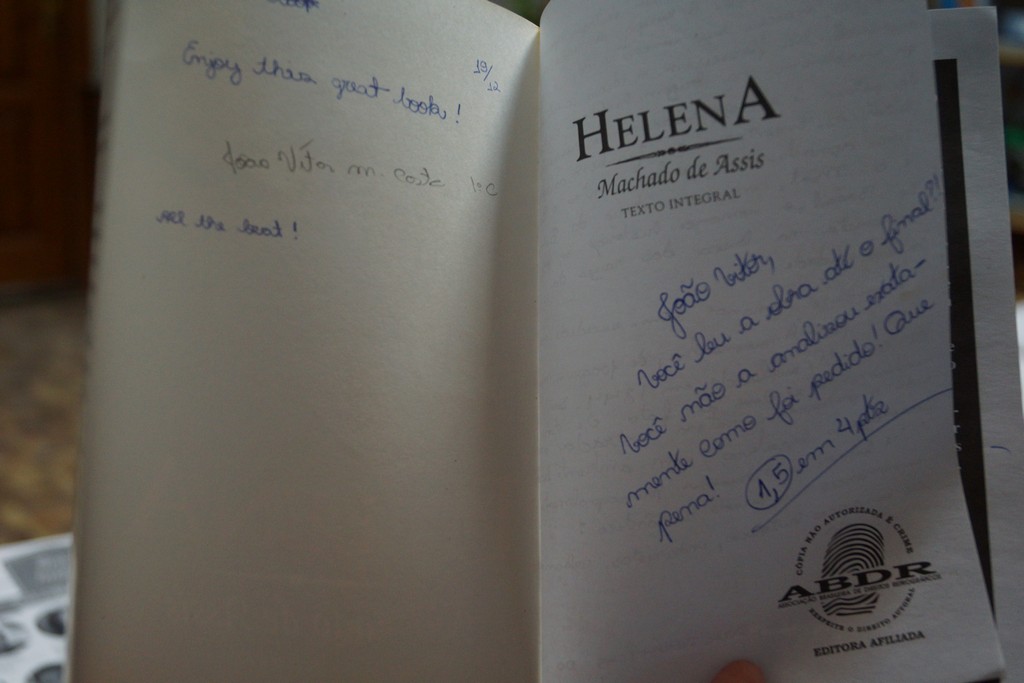 Enjoy this great book!
19/12
João Vítor M. Costa 1º C
All the best!
HELENA
Machado de Assis
TEXTO INTEGRAL
João Vitor,
Você leu a obra até o final?!
Você não a analisou exata-
mente como foi pedido! Que
pena! 1,5 em 4 pts
CÓPIA NÃO AUTORIZADA É CRIME
ABDR
ASSOCIAÇÃO BRASILEIRA DE DIREITOS REPROGRÁFICOS
RESPEITE O DIREITO AUTORAL
EDITORA AFILIADA